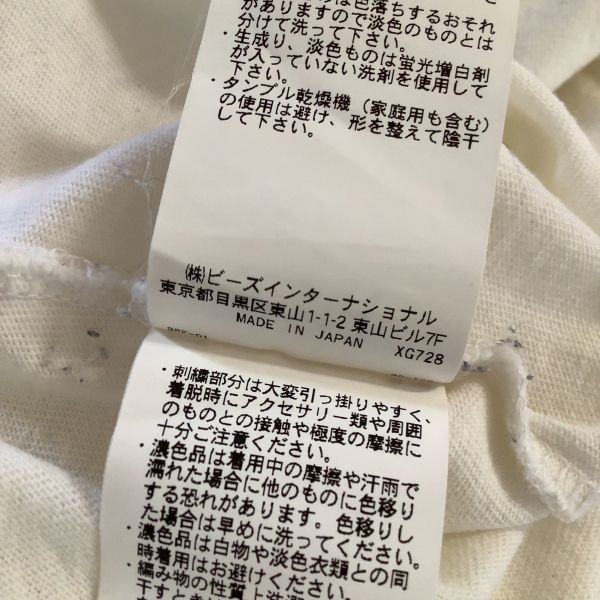 は色落ちするおそれ
がありますので淡色のものとは
分けて洗って下さい。
・生成り、淡色ものは蛍光増白剤
が入っていない洗剤を使用して
下さい。
・タンブル乾燥機（家庭用も含む）
の使用は避け、形を整えて陰干
して下さい。
㈱ビーズインターナショナル
東京都目黒区東山1-1-2 東山ビル7F
MADE IN JAPAN XG728
・刺繍部分は大変引っ掛りやすく、
着脱時にアクセサリー類や周囲
のものとの接触や極度の摩擦に
十分ご注意ください。
・濃色品は着用中の摩擦や汗雨で
濡れた場合に他のものに色移り
する恐れがあります。色移りし
た場合は早めに洗ってください。
・濃色品は白物や淡色衣類との同
時着用はお避けください。
・編み物の性質上洗
干すとき